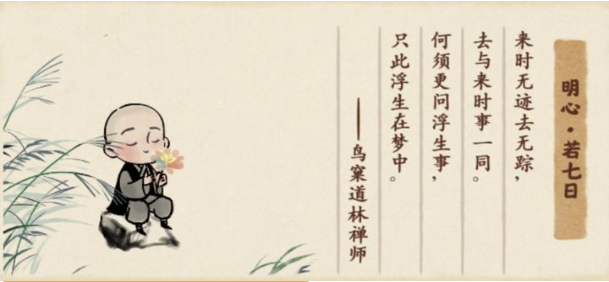 明心·若七日
来时无迹去无踪，
去与来时事一同。
何须更问浮生事，
只此浮生在梦中。
——鸟窠道林禅师